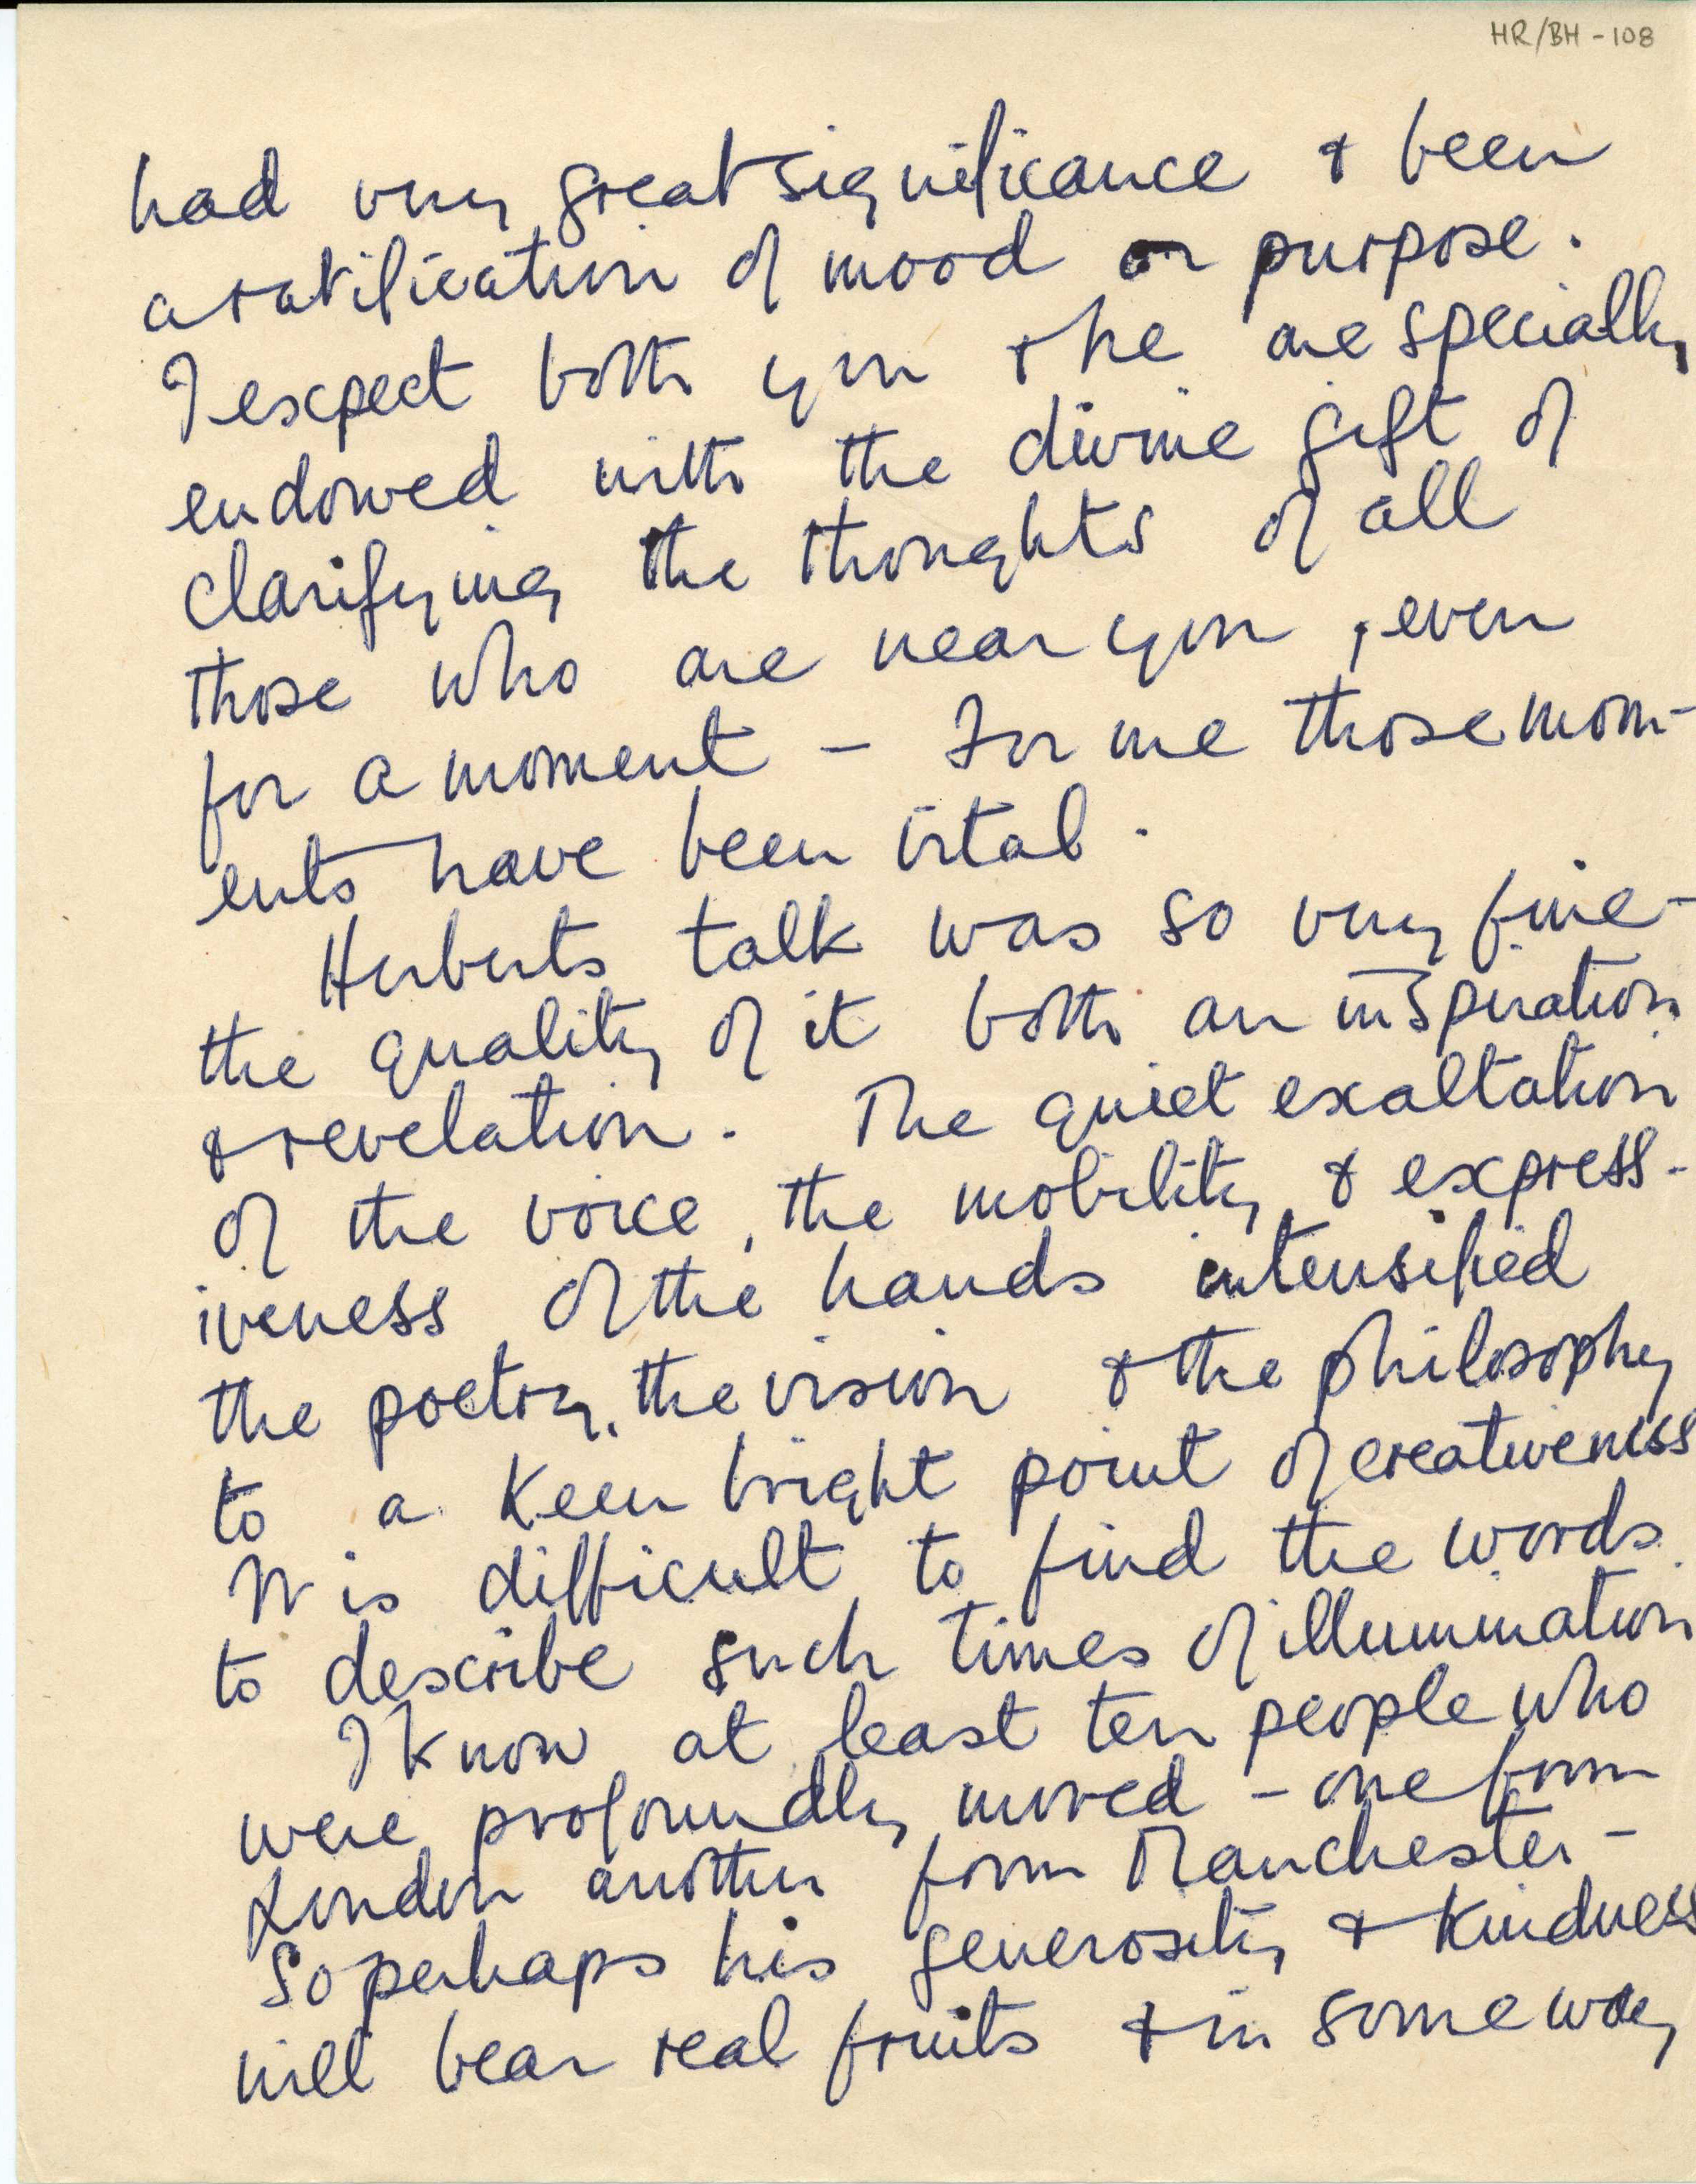 HR/BH - 108
had very great significance & been
a ratification of mood or purpose.
I expect both you & he are specially
endowed with the divine gift of
clarifying the thoughts of all
those who are near you, even
for a moment – For me those mom-
ents have been vital.
Herberts talk was so very fine –
the quality of it both an inspiration
& revelation. The quiet exaltation
of the voice, the mobility & express-
iveness of the hands intensified
the poetry, the vision & the philosophy
to a keen bright point of creativeness
It is difficult to find the words
to describe such times of illumination
I know at least ten people who
were profoundly moved – one from
London another from Manchester –
So perhaps his generosity & kindness
will bear real fruits & in some way